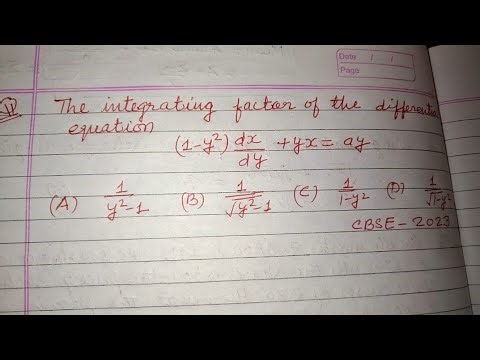 Date / /
Page
The integrating factor of the differential
equation
(1-y²) dx/dy + yx = ay
(A) 1/y²-1 (B) 1/√y²-1 (C) 1/1-y² (D) 1/√1-y²
CBSE - 2023